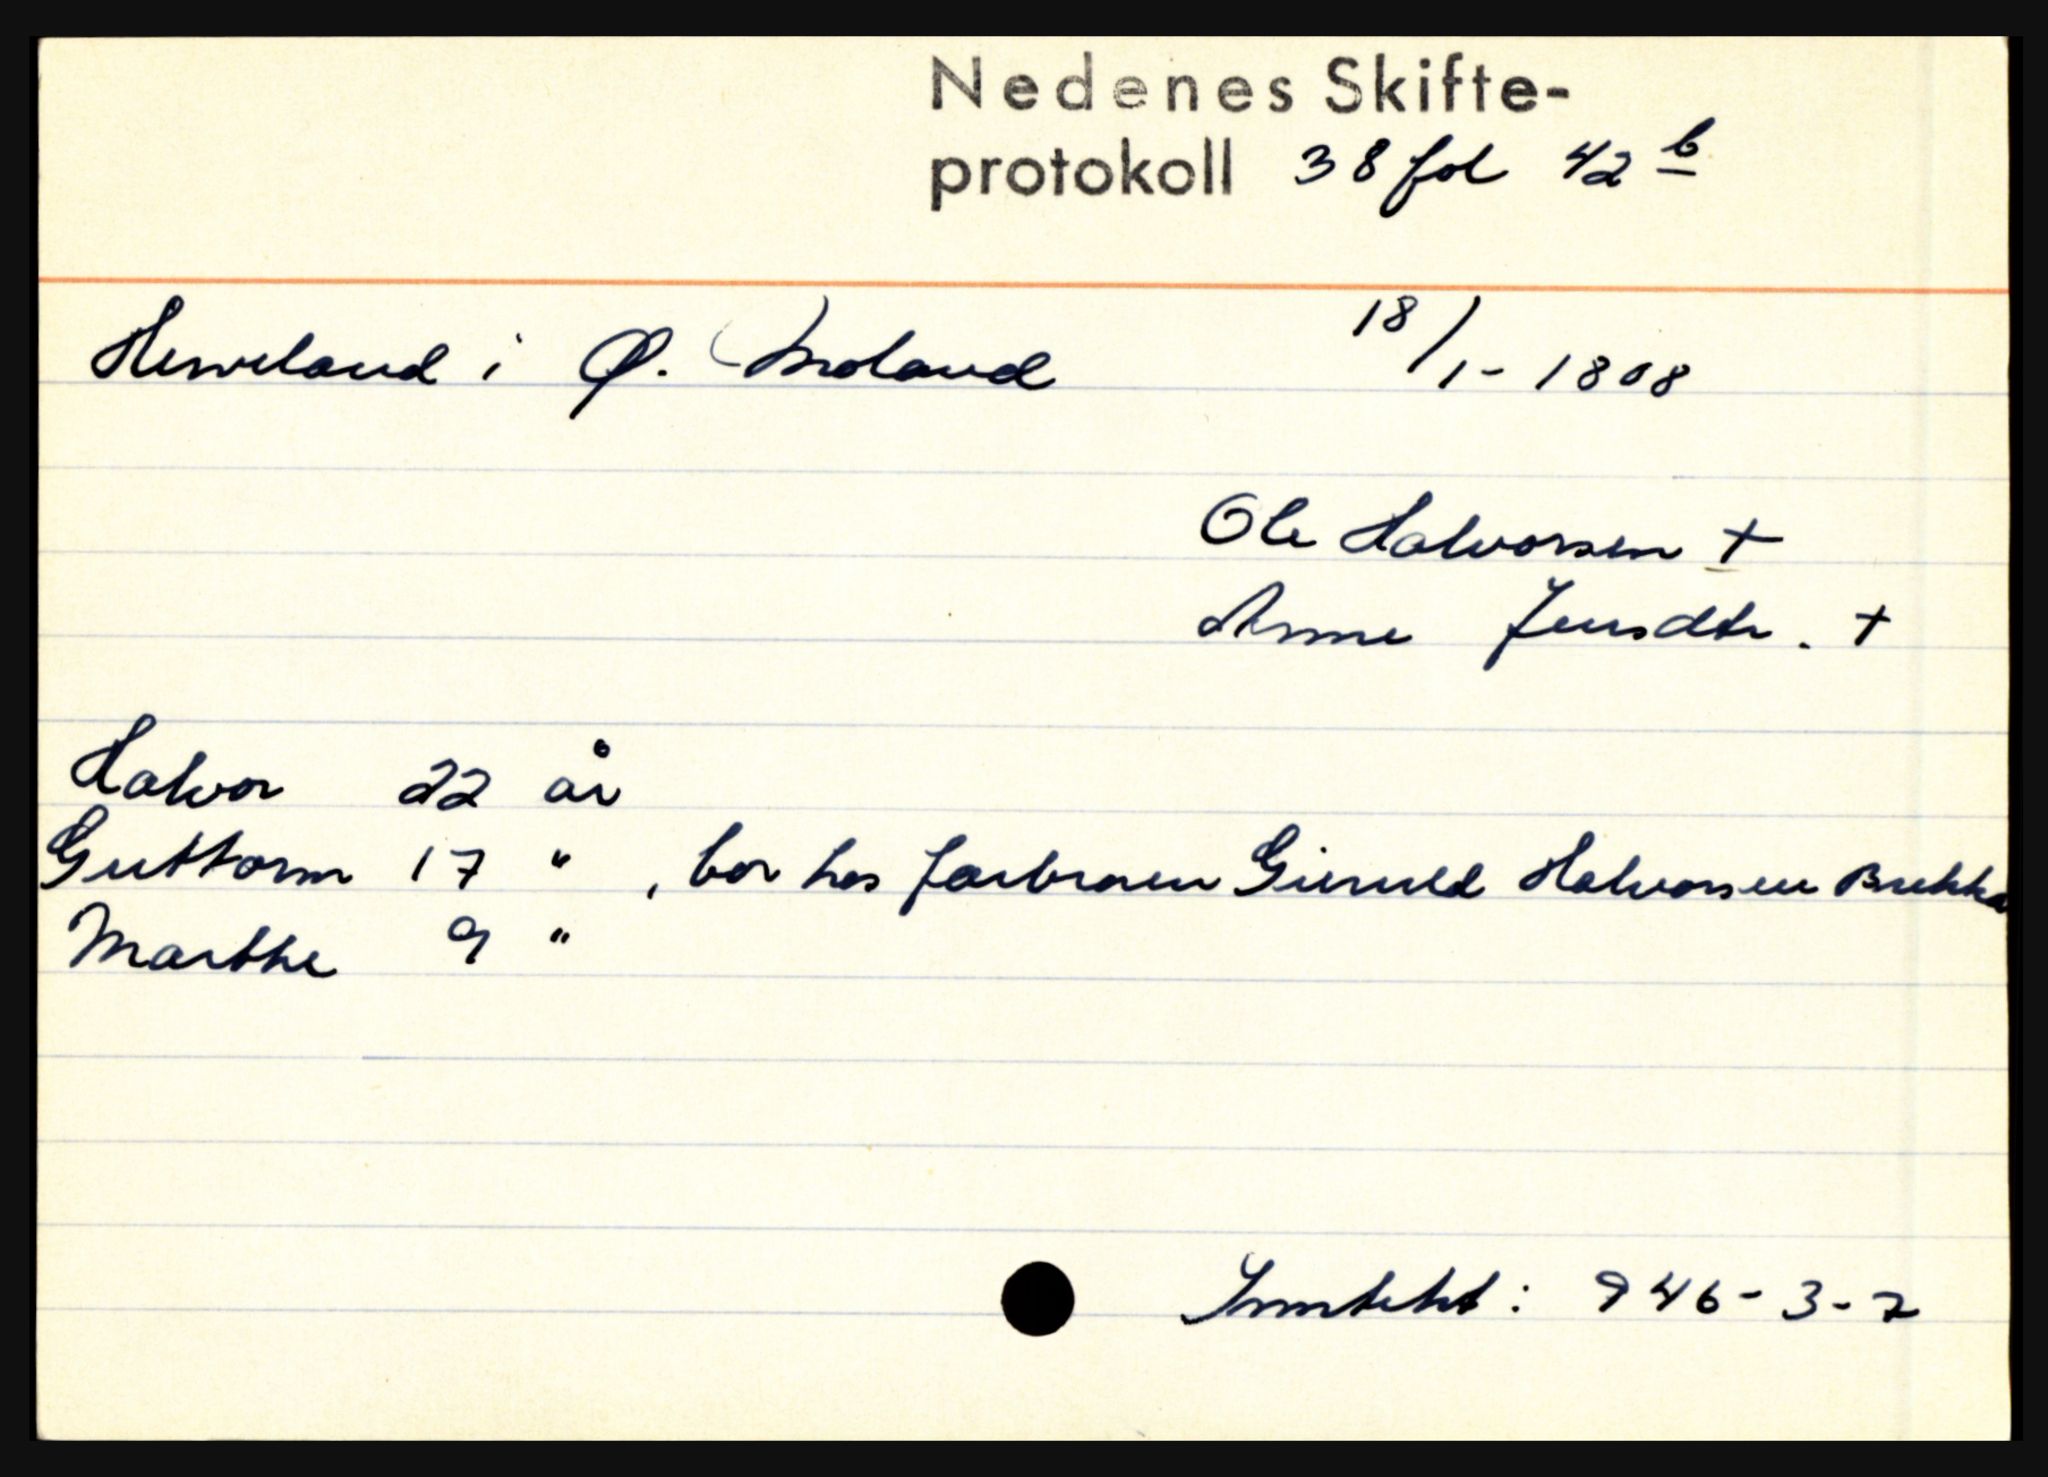 Nedenes Skifte-
protokoll 38 fol 42 b
Herreland i Ø. Moland 18/1-1808
Ole Halvorsen +
Anne Jensdtr. +
Halvor 22 år
Guttorm 17 " , bor hos farbroren Gieruld Halvorsen Brekka
Marthe 9 "
Inntekt: 946-3-2